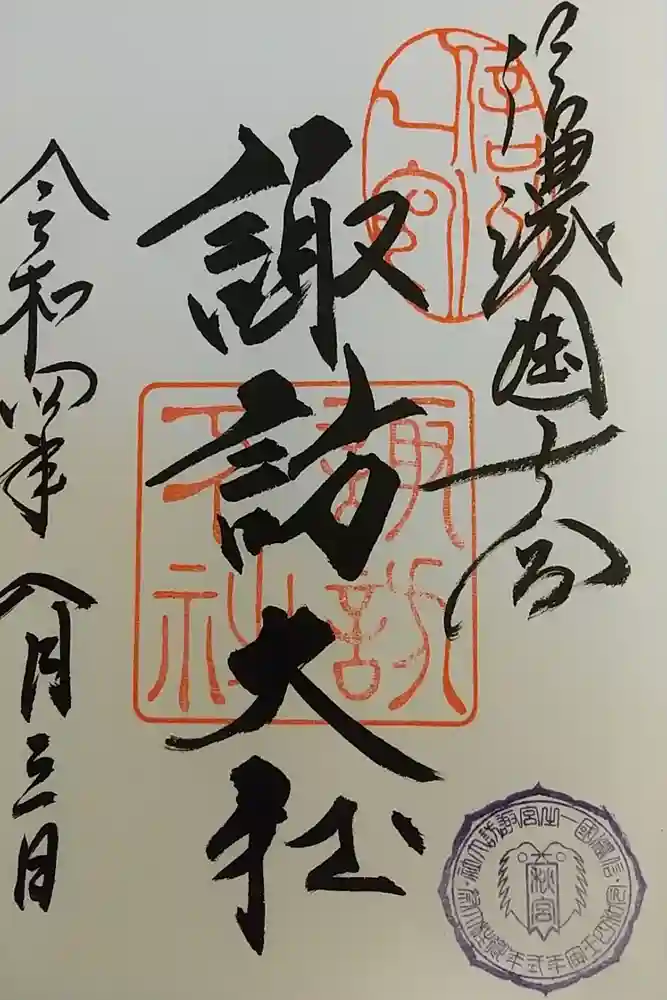 信濃國一宮
諏訪大社
令和四年八月三日
諏訪
大社
信濃國一之宮諏訪大社
秋宮